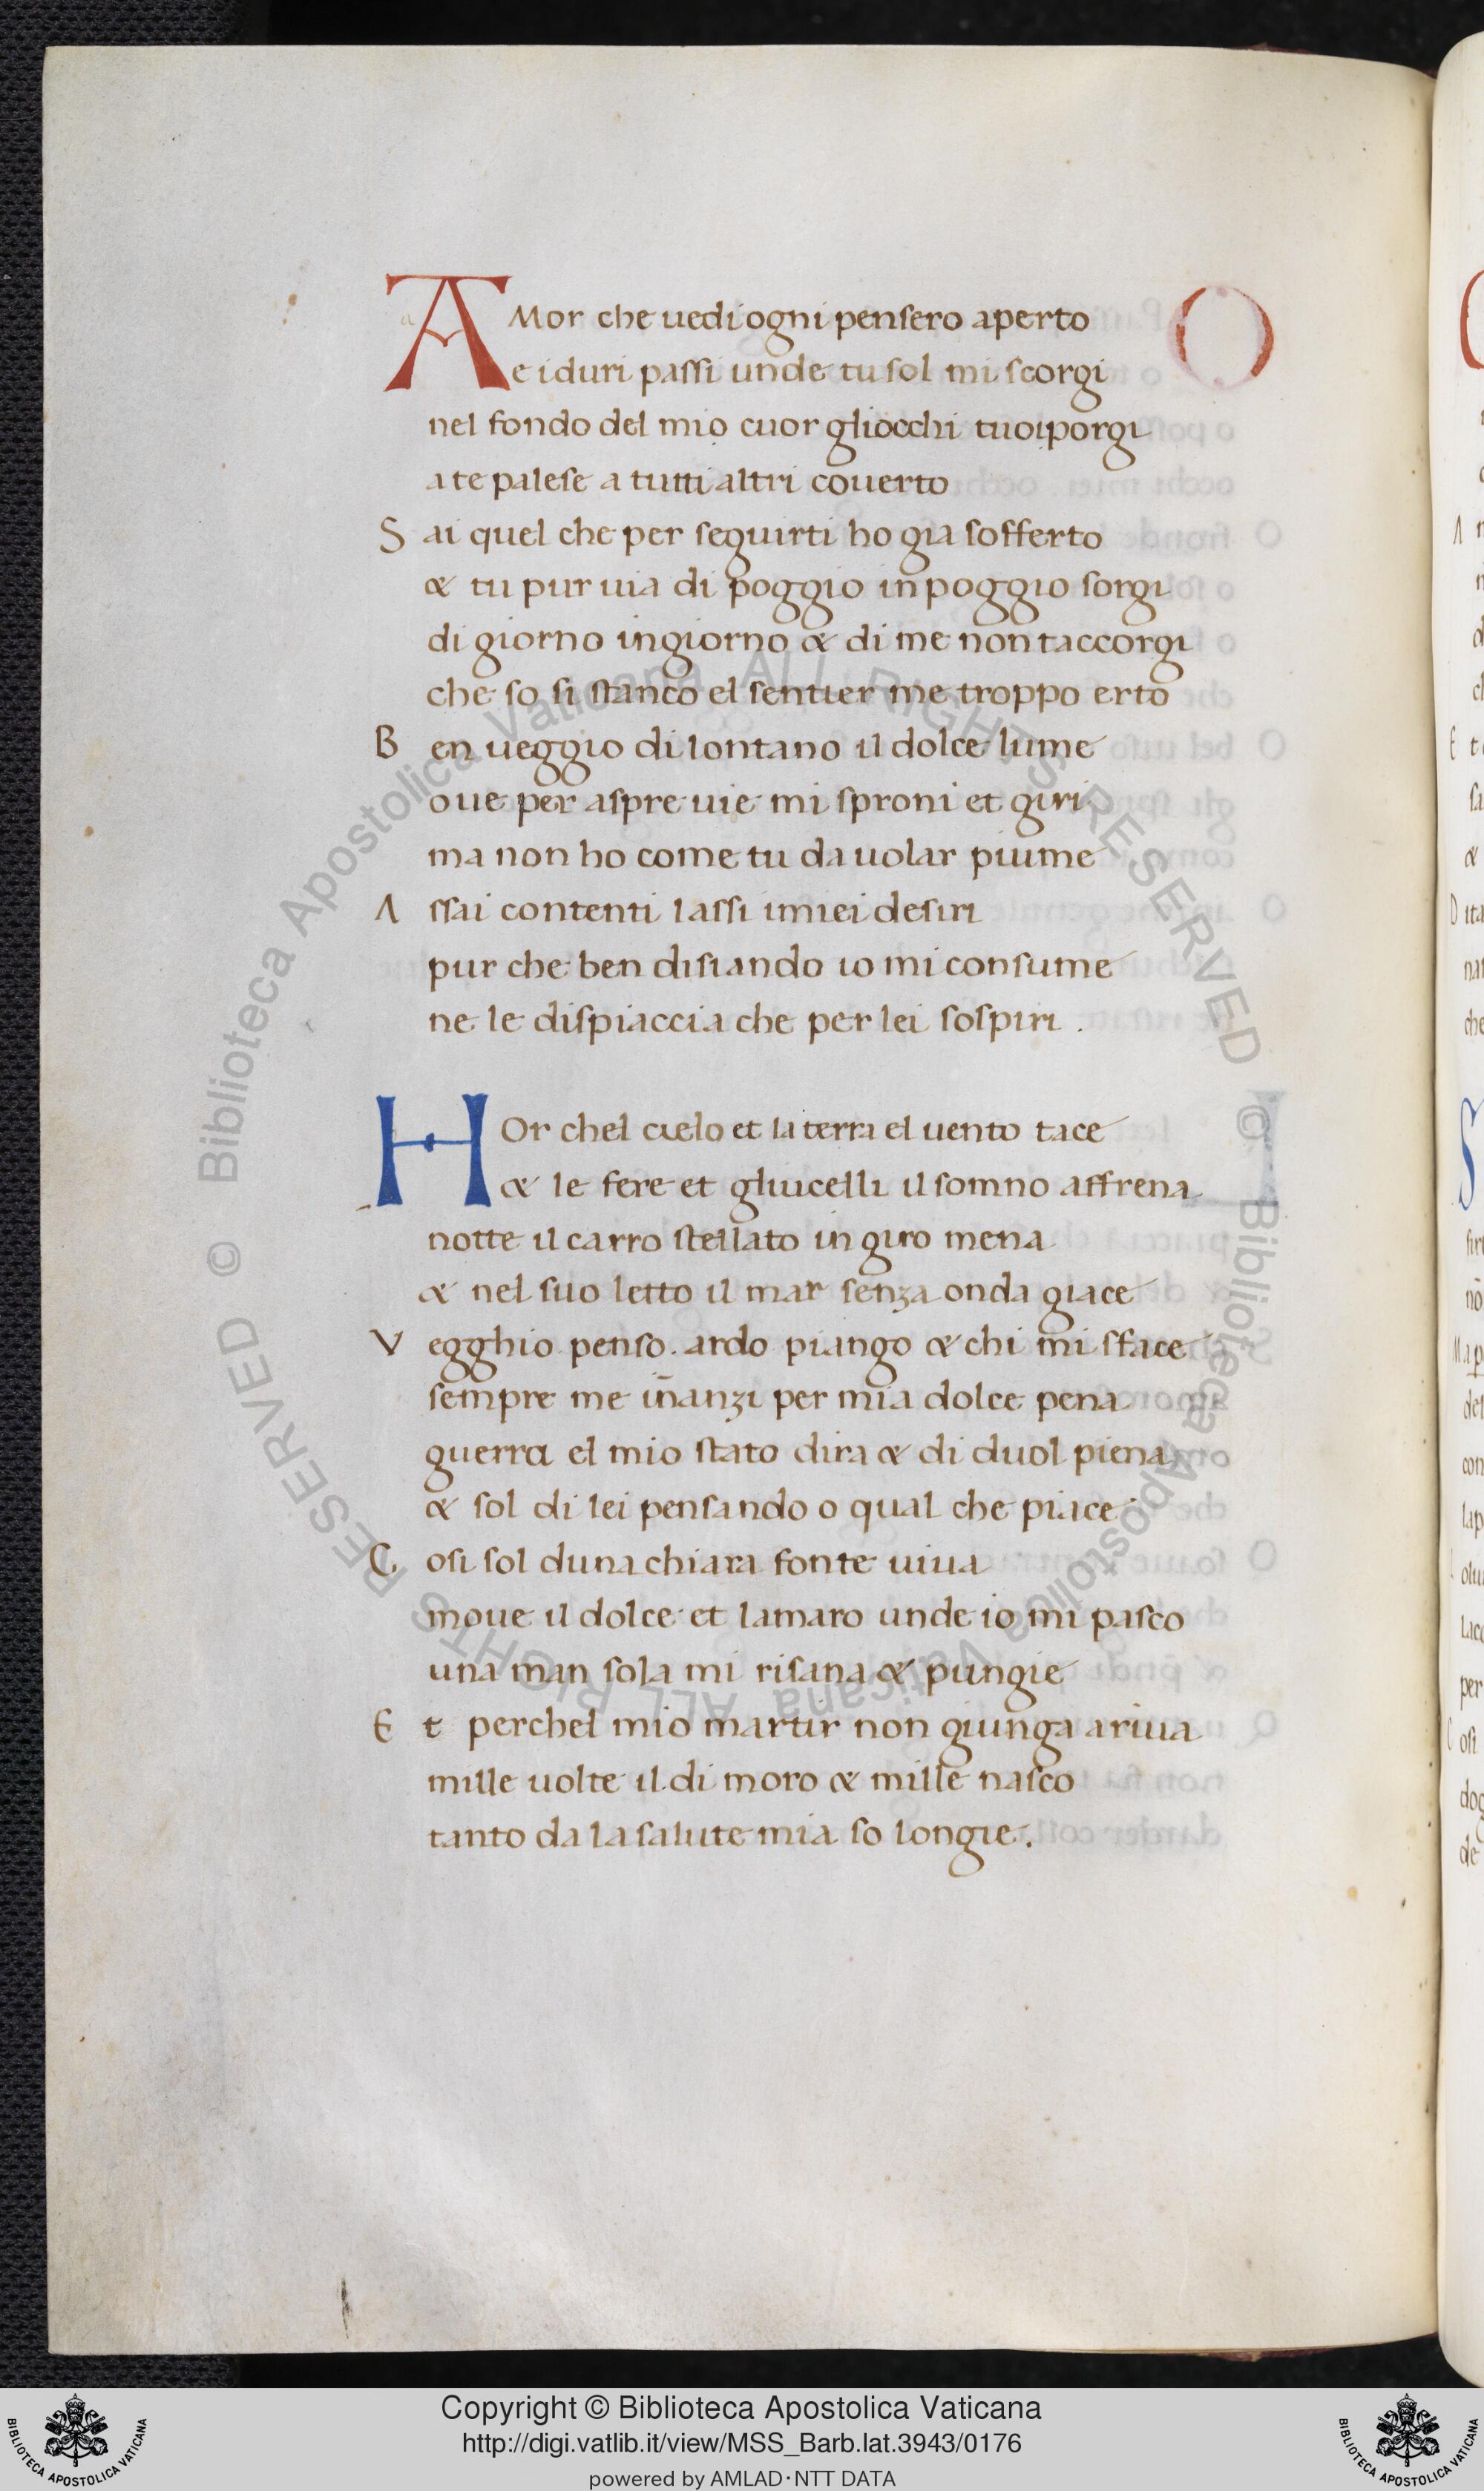 AMor che uedi ogni pensero aperto
e i duri passi unde tu sol mi scorgi
nel fondo del mio cuor gliocchi tuoi porgi
a te palese a tutti altri couerto
Sai quel che per seguirti ho gia sofferto
& tu pur uia di poggio in poggio sorgi
di giorno in giorno & di me non taccorgi
che so si stanco el sentier me troppo erto
Ben ueggio di lontano il dolce lume
oue per aspre uie mi sproni et giri
ma non ho come tu da uolar piume
Assai contenti lassi i miei desiri
pur che ben disiando io mi consume
ne le dispiaccia che per lei sospiri .
HOr chel cielo et la terra el uento tace
& le fere et gliucelli il somno affrena
notte il carro stellato in giro mena
& nel suo letto il mar senza onda giace
Vegghio penso. ardo piango & chi mi sface
sempre me iñanzi per mia dolce pena
guerra el mio stato dira & di duol piena
& sol di lei pensando o qual che piace
Cosi sol duna chiara fonte uiua
moue il dolce et lamaro unde io mi pasco
una man sola mi risana & pungie
Et perchel mio martir non giunga a riua
mille uolte il di moro & mille nasco
tanto da la salute mia so longie.
Copyright © Biblioteca Apostolica Vaticana
http://digi.vatlib.it/view/MSS_Barb.lat.3943/0176
powered by AMLAD·NTT DATA
BIBLIOTECA APOSTOLICA VATICANA
BIBLIOTECA APOSTOLICA VATICANA
© Biblioteca Apostolica Vaticana ALL RIGHTS RESERVED
© Biblioteca Apostolica Vaticana ALL RIGHTS RESERVED